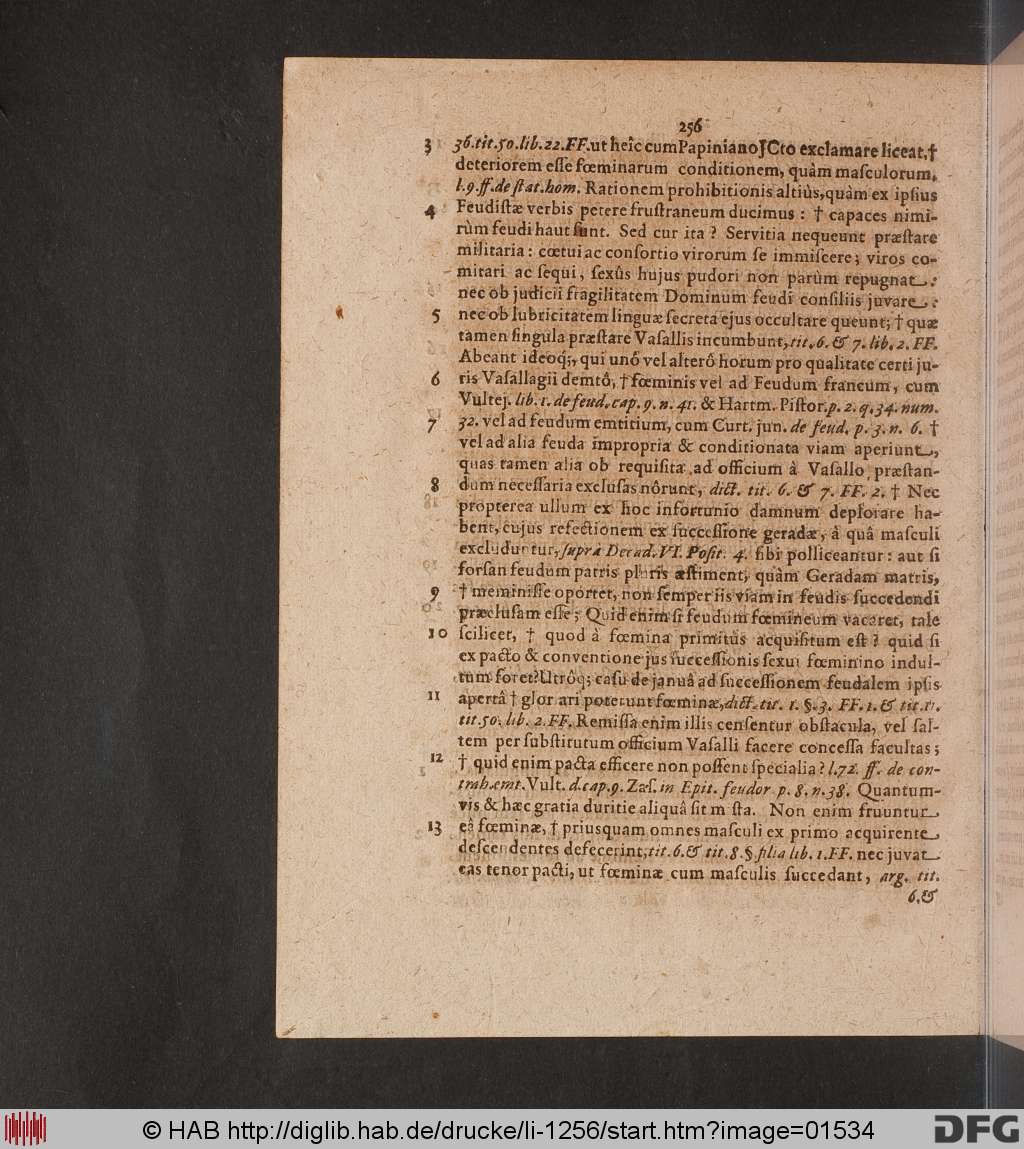 256
3 36.tit.50.lib.22.FF.ut heîc cum Papiniano JCto exclamare liceat,†
deteriorem eſſe fœminarum conditionem, quàm maſculorum,
l.9.ff.de ſtat.hom. Rationem prohibitionis altiùs, quàm ex ipſius
4 Feudiſtæ verbis petere fruſtraneum ducimus: † capaces nimi-
rùm feudi haut ſunt. Sed cur ita? Servitia nequeunt præſtare
militaria: cœtui ac conſortio virorum ſe immiſcere; viros co-
mitari ac ſequi, ſexûs hujus pudori non parùm repugnat:
nec ob judicii fragilitatem Dominum feudi conſiliis juvare:
5 nec ob lubricitatem linguæ ſecreta ejus occultare queunt; † quæ
tamen ſingula præſtare Vaſallis incumbunt, tit. 6. & 7. lib. 2. FF.
Abeant ideoq;, qui unô vel alterô horum pro qualitate certi ju-
6 ris Vaſallagii demtô, † fœminis vel ad Feudum francum, cum
Vultej. lib. 1. de feud. cap. 9. n. 41. & Hartm. Piſtor. p. 2. q. 34. num.
7 32. vel ad feudum emtitium, cum Curt. jun. de feud. p. 3. n. 6. †
vel ad alia feuda impropria & conditionata viam aperiunt,
quas tamen alia ob requiſita ad officium à Vaſallo præſtan-
8 dum neceſſaria excluſas nôrunt, dict. tit. 6. & 7. FF. 2. † Nec
propterea ullum ex hoc infortunio damnum deplorare ha-
bent, cujus refectionem ex ſucceſſione geradæ, à quâ maſculi
excluduntur, ſuprà Decad. VI. Poſit. 4. ſibi polliceantur: aut ſi
forſan feudum patris pluris æſtiment, quàm Geradam matris,
9 † meminiſſe oportet, non ſemper iis viam in feudis ſuccedendi
præcluſam eſſe; Quid enim ſi feudum fœmineum vacaret, tale
10 ſcilicet, † quod à fœmina primitùs acquiſitum eſt? quid ſi
ex pacto & conventione jus ſucceſſionis ſexui fœminino indul-
tum foret? Utrôq; caſu de januâ ad ſucceſſionem feudalem ipſis
11 apertâ † glorari poterunt fœminæ, dict. tit. 1. §. 3. FF. 1. & tit. 11.
tit.50. lib. 2. FF. Remiſſa enim illis cenſentur obſtacula, vel ſal-
tem per ſubſtitutum officium Vaſalli facere conceſſa facultas;
12 † quid enim pacta efficere non poſſent ſpecialia? l.72. ff. de con-
trah.emt. Vult. d.cap.9. Zaſ. in Epit. feudor p. 8. n.38. Quantum-
vis & hæc gratia duritie aliquâ ſit m ſta. Non enim fruuntur
13 eâ fœminæ, † priusquam omnes maſculi ex primo acquirente
deſcendentes defecerint, tit.6.& tit.8.§ filia lib. 1.FF. nec juvat
eas tenor pacti, ut fœminæ cum maſculis ſuccedant, arg. tit.
6.&
© HAB http://diglib.hab.de/drucke/li-1256/start.htm?image=01534
DFG